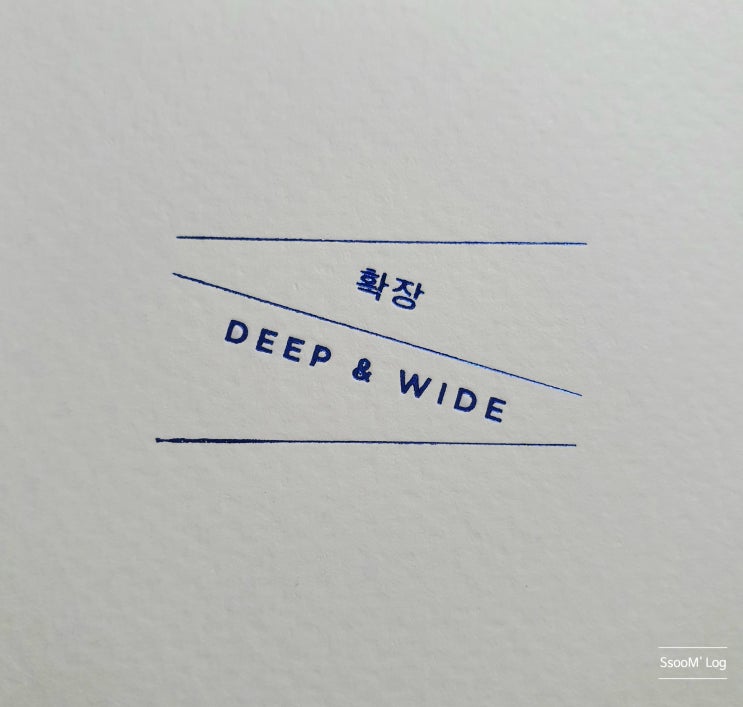 확장
DEEP & WIDE
SsooM' Log